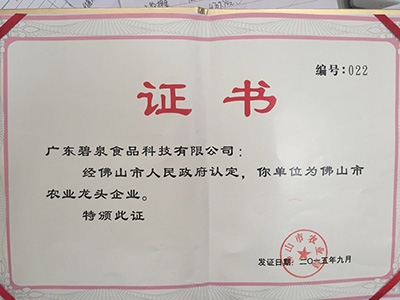 编号：022
证书
广东碧泉食品科技有限公司：
经佛山市人民政府认定，你单位为佛山市
农业龙头企业。
特颁此证
发证日期：二〇一五年九月